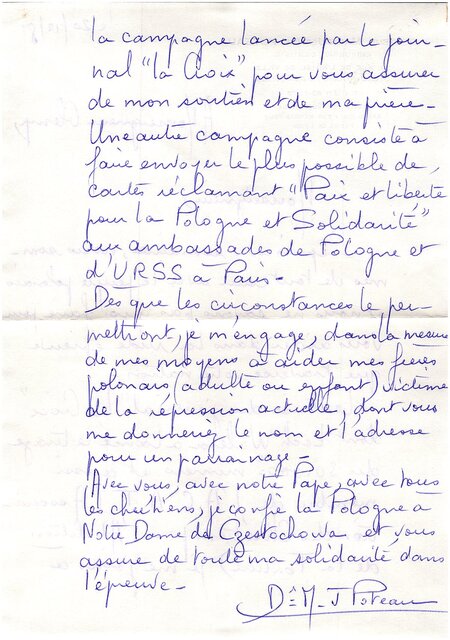 la campagne lancée par le jour-
nal "la Croix" pour vous assurer
de mon soutien et de ma prière-
Une autre campagne consiste à
faire envoyer le plus possible de
cartes réclamant "Paix et liberté
pour la Pologne et Solidarité"
aux ambassades de Pologne et
d'URSS à Paris-
Dès que les circonstances le per-
mettront, je m'engage, dans la mesure
de mes moyens à aider mes frères
polonais (adulte ou enfant) victime
de la répression actuelle, dont vous
me donneriez le nom et l'adresse
pour un parrainage-
Avec vous, avec notre Pape, avec tous
les chrétiens, je confie la Pologne à
Notre Dame de Czestochowa et vous
assure de toute ma solidarité dans
l'épreuve-
M-J